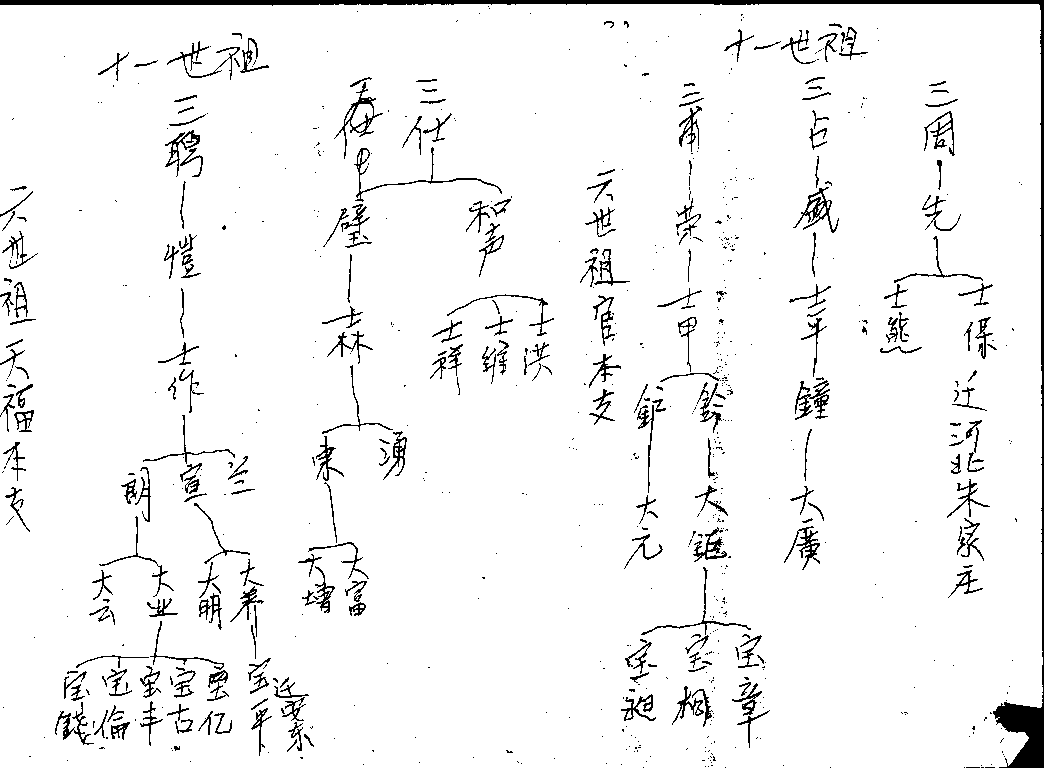 十一世祖
三周
先
士保
迁河北朱家庄
士熊
三占
盛
士平
鐘
大廣
三甫
荣
士甲
鈴
大鉅
宝章
宝相
宝昶
鉅
大元
六世祖官本支
十一世祖
三仕
和声
士洪
士维
士祥
璧
士森
湧
東
大富
大增
三聘
愷
士作
兰
宣
大养
宝平
迁安东
大明
朗
大业
宝亿
宝古
宝丰
宝倫
宝錢
大云
六世祖天福本支